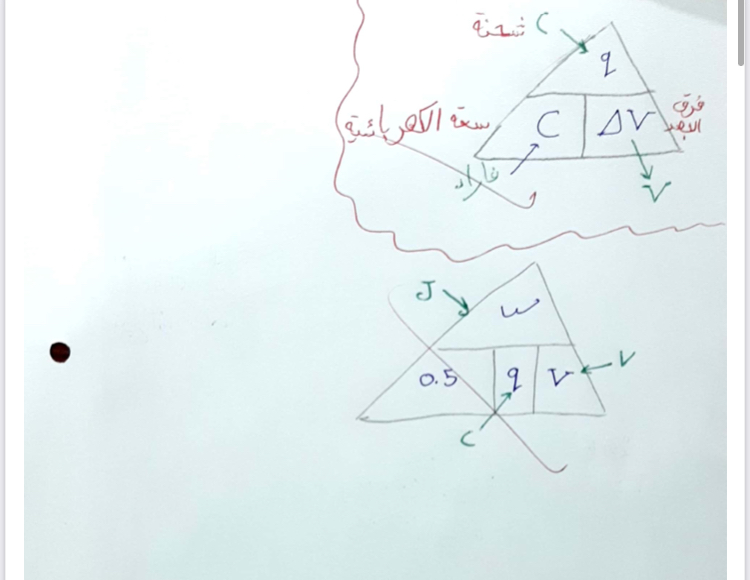 شحنة C
q
سعة الكهربائية
C ΔV
فرق
الجهد
فاراد
V
J
w
0.5 q V
V
C